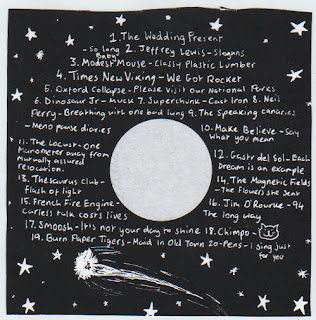 1. The Wedding Present
- So long Baby 2. Jeffrey Lewis - Slogans
3. Modest Mouse - Classy Plastic Lumber
4. Times New Viking - We Got Rocket
5. Oxford Collapse - Please visit our National Parks
6. Dinosaur Jr - Muck 7. Superchunk - Cast Iron 8. Neil
Perry - Breathing with one bad lung 9. The Speaking Canaries
- Meno pause diaries
10. Make Believe - Say
what you mean
11. The Locust - One
manometer away from
Mutually assured
relocation.
12. Gastr del Sol - Each
Dream is an example
13. Thesaurus Club -
flash of light
14. The Magnetic Fields
- The Flowers she Sent
15. French Fire Engine -
Carless talk costs lives
16. Jim O'Rourke - 94
The long way
17. Smoosh - It's not your day to shine 18. Chimpo -
19. Burn Paper Tigers - Maid in Old Town 20 - Pens - I sing just
for you